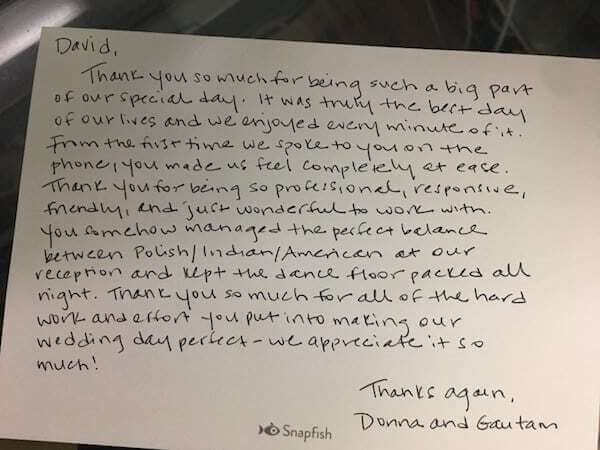 David,
Thank you so much for being such a big part
of our special day. It was truly the best day
of our lives and we enjoyed every minute of it.
From the first time we spoke to you on the
phone, you made us feel completely at ease.
Thank you for being so professional, responsive,
friendly, and just wonderful to work with.
You somehow managed the perfect balance
between Polish/Indian/American at our
reception and kept the dance floor packed all
night. Thank you so much for all of the hard
work and effort you put into making our
wedding day perfect - we appreciate it so
much!
Thanks again,
Donna and Gautam
Snapfish